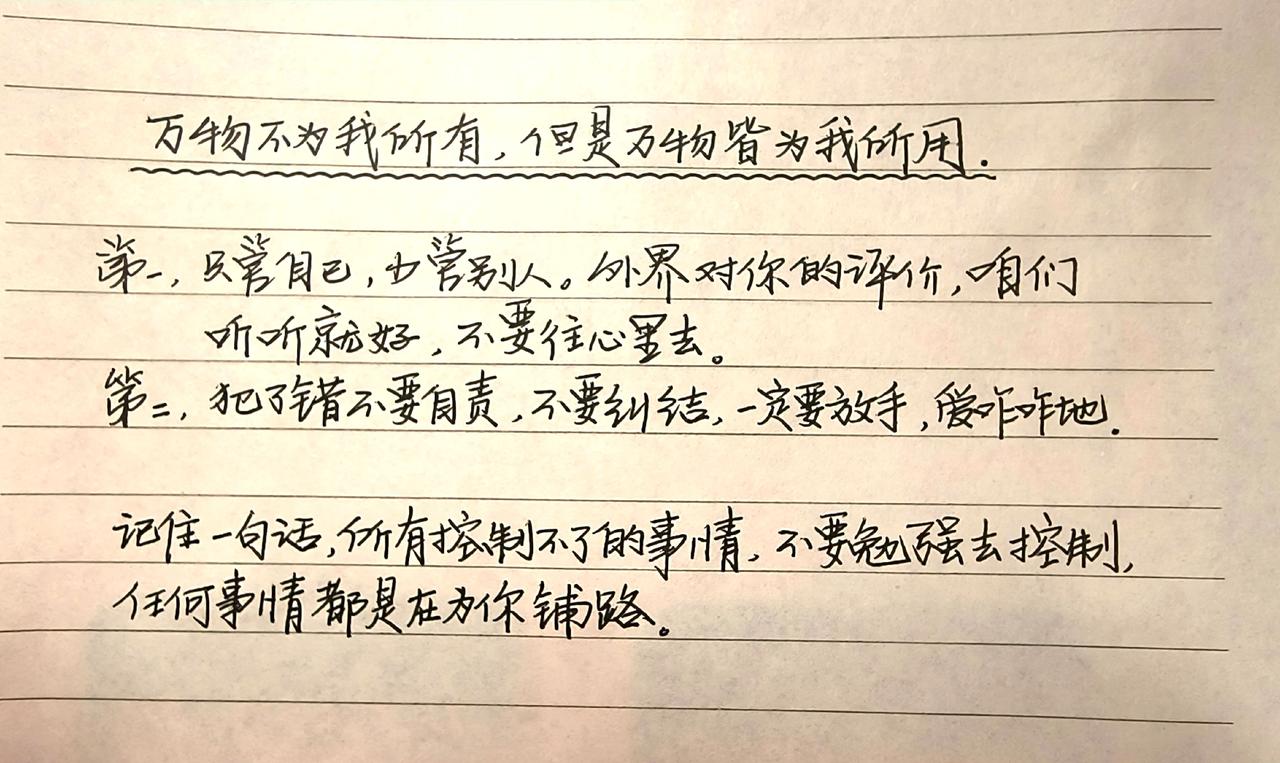 万物不为我所有，但是万物皆为我所用.
第一，只管自己，少管别人。外界对你的评价，咱们
听听就好，不要往心里去。
第二，犯了错不要自责，不要纠结，一定要放手，爱咋咋地.
记住一句话，所有控制不了的事情，不要勉强去控制，
任何事情都是在为你铺路。